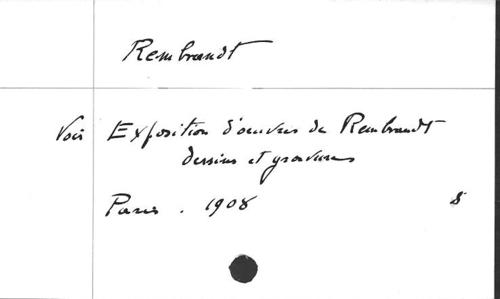 Rembrandt
Voir Exposition d'oeuvres de Rembrandt
dessins et gravures
Paris . 1908 8